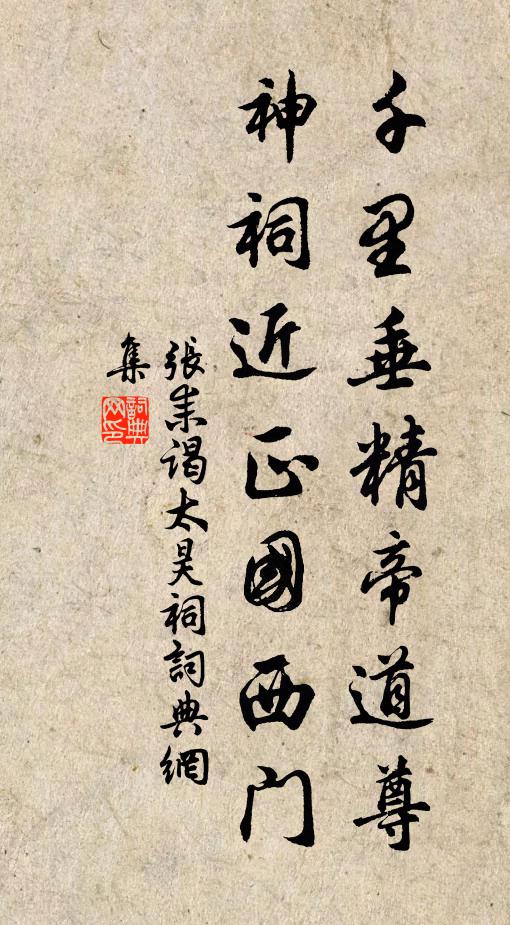 千里垂精帝道尊
神祠近正國西門
張耒謁太昊祠詞典網
集
詞典
网印